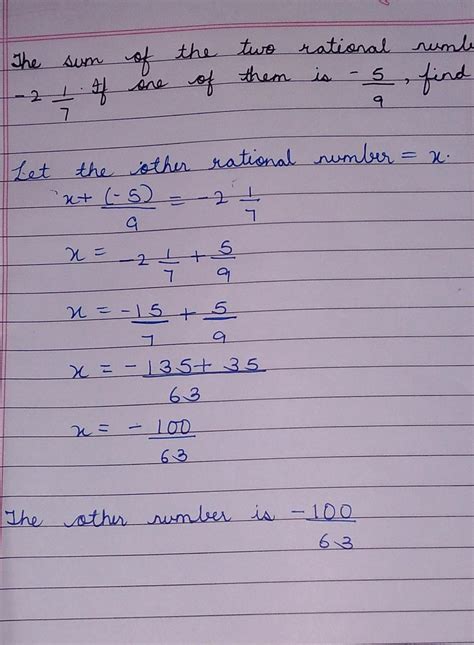 The sum of the two rational
-2 1/7. If one of them is -5/9, find
Let the other rational number = x.
x + (-5)/9 = -2 1/7
x = -2 1/7 + 5/9
x = -15/7 + 5/9
x = -135 + 35/63
x = -100/63
The other number is -100/63